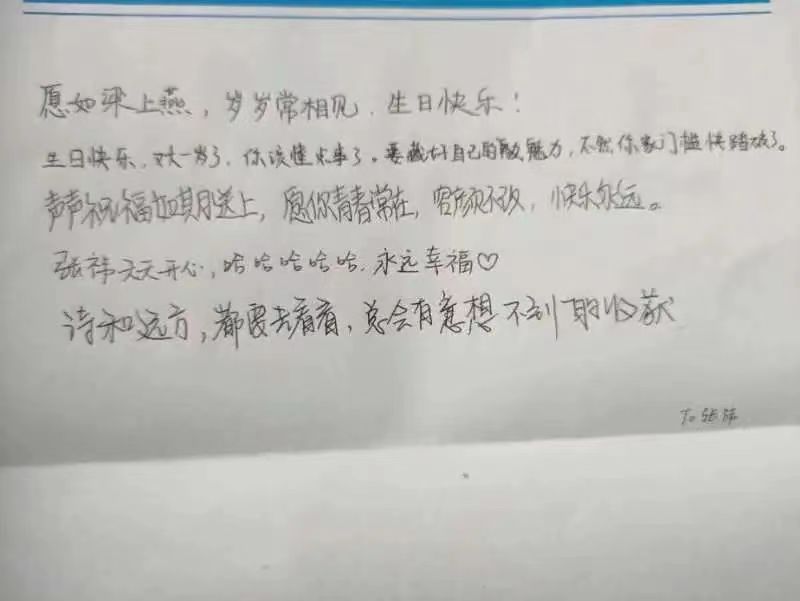 愿如梁上燕，岁岁常相见．生日快乐！
生日快乐，又大一岁了，你该懂点事了。要藏好自己的魅力，不然你家门槛快踏破了。
声声祝福如期送上，愿你青春常在，容颜不改，快乐永远。
张祎天天开心，哈哈哈哈哈．永远幸福♡
诗和远方，都要去看看，总会有意想不到的收获
To 张祎